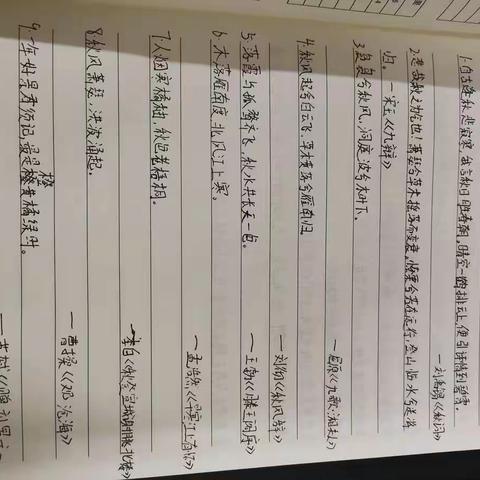 1.自古逢秋悲寂寥,我言秋日胜春朝。晴空一鹤排云上,便引诗情到碧霄。
—刘禹锡《秋词》
2.悲哉秋之为气也!萧瑟兮草木摇落而变衰。憭栗兮若在远行,登山临水兮送将
归。—宋玉《九辩》
3.袅袅兮秋风,洞庭波兮木叶下。
—屈原《九歌·湘夫人》
4.秋风起兮白云飞,草木黄落兮雁南归。
—刘彻《秋风辞》
5.落霞与孤鹜齐飞,秋水共长天一色。
—王勃《滕王阁序》
6.木落雁南度,北风江上寒。
—孟浩然《早寒江上有怀》
7.人烟寒橘柚,秋色老梧桐。
—李白《秋登宣城谢朓北楼》
8.秋风萧瑟,洪波涌起。
—曹操《观沧海》
9.一年好景君须记,最是橙黄橘绿时。
—苏轼《赠刘景